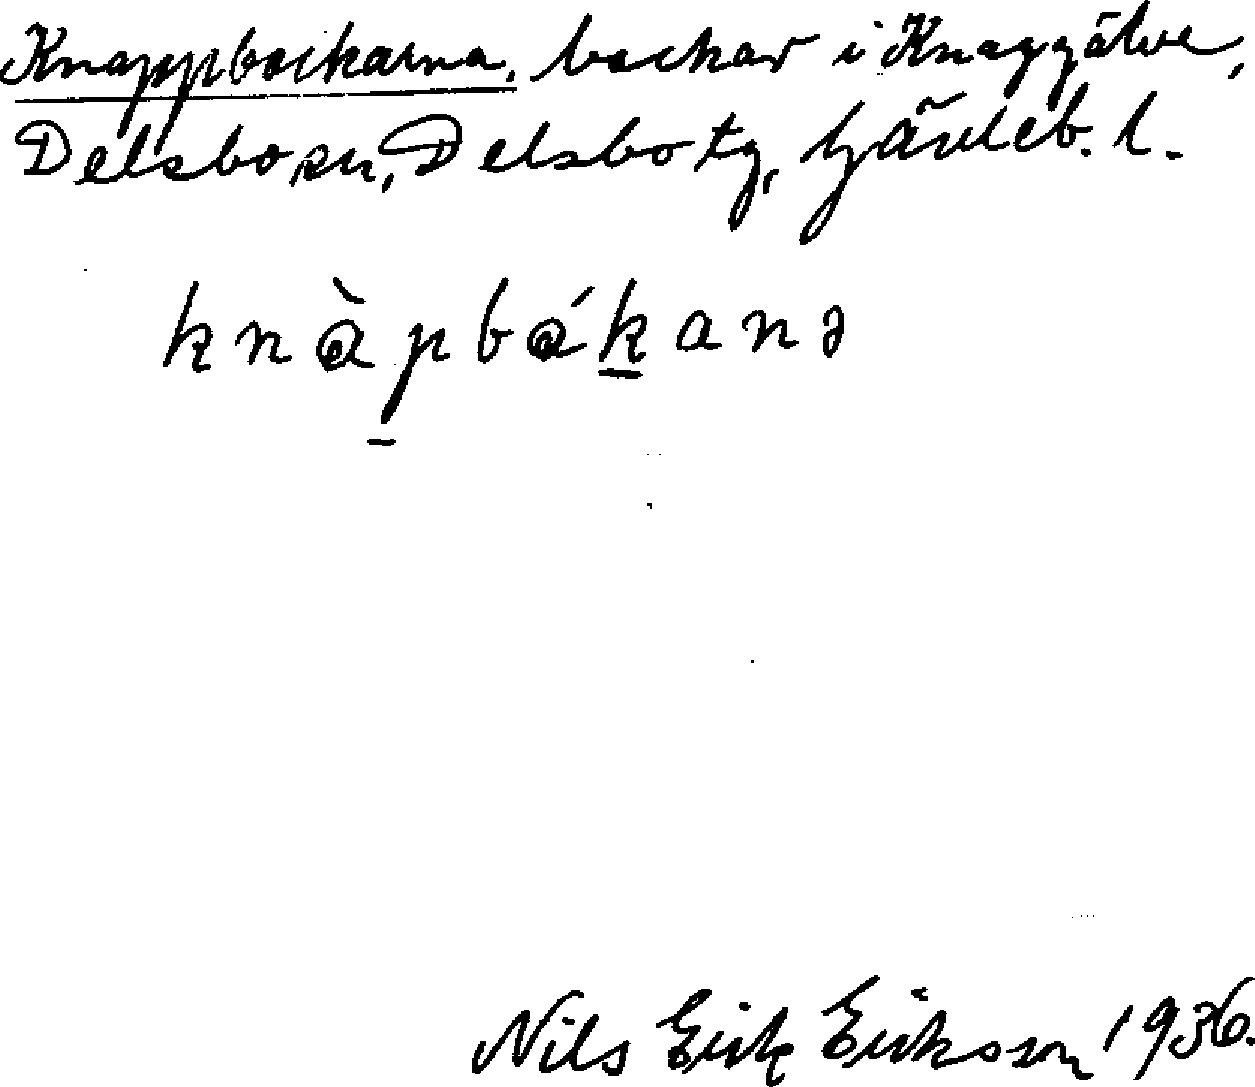 Knappbockarna, bockar i Knaggälve,
Delsbo sn, Delsbo tg, Gävleb. l.
knàpbákanə
Nils Erik Eriksson 1936.